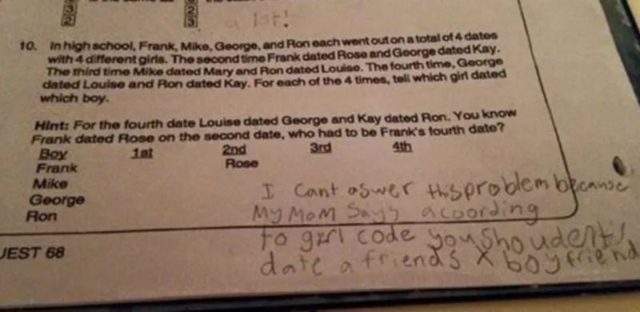 a 1st!
10. In high school, Frank, Mike, George, and Ron each went out on a total of 4 dates
with 4 different girls. The second time Frank dated Rose and George dated Kay.
The third time Mike dated Mary and Ron dated Louise. The fourth time, George
dated Louise and Ron dated Kay. For each of the 4 times, tell which girl dated
which boy.
Hint: For the fourth date Louise dated George and Kay dated Ron. You know
Frank dated Rose on the second date, who had to be Frank's fourth date?
Boy 1st 2nd 3rd 4th
Frank Rose
Mike
George
Ron
I cant aswer this problem because
My Mom Says acoording
to girl code you shoudent
date a friends X boyfriend
UEST 68